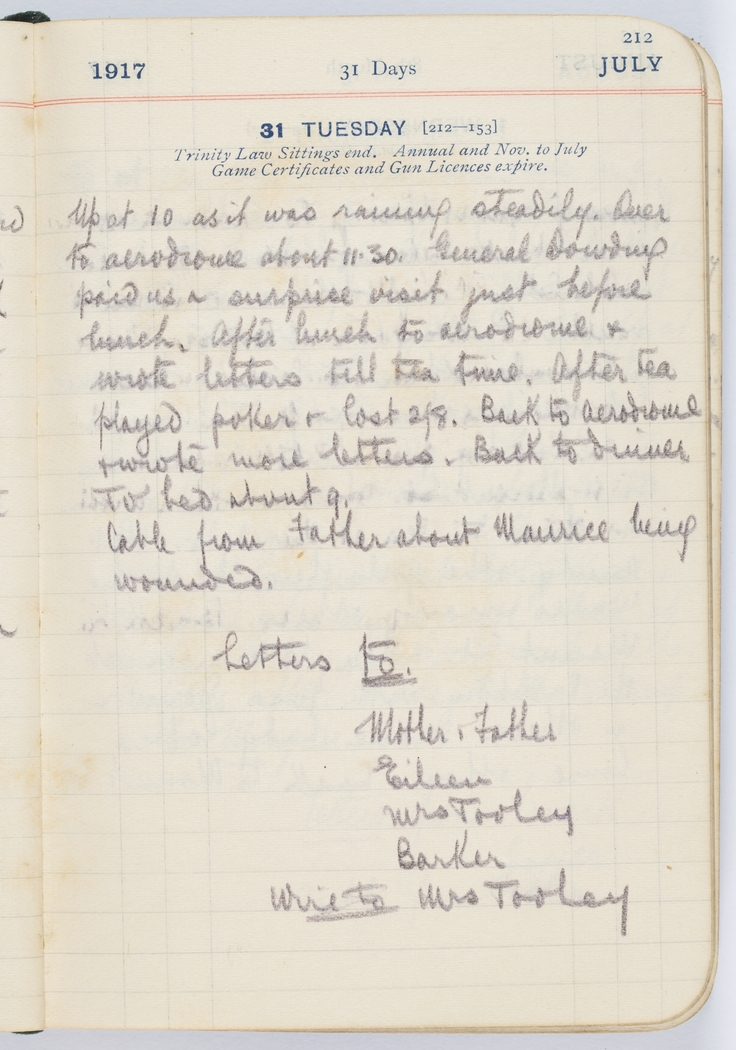 212
1917 31 Days JULY
31 TUESDAY [212—153]
Trinity Law Sittings end. Annual and Nov. to July
Game Certificates and Gun Licences expire.
Up at 10 as it was raining steadily. Over
to aerodrome about 11.30. General Dowding
paid us a surprise visit just before
lunch. After lunch to aerodrome +
wrote letters till tea time. After tea
played poker + lost 2/8. Back to aerodrome
+ wrote more letters. Back to dinner
To bed about 9.
Cable from Father about Maurice being
wounded.
Letters to.
Mother + Father
Eileen
Mrs Tooley
Barker
Wire to Mrs Tooley